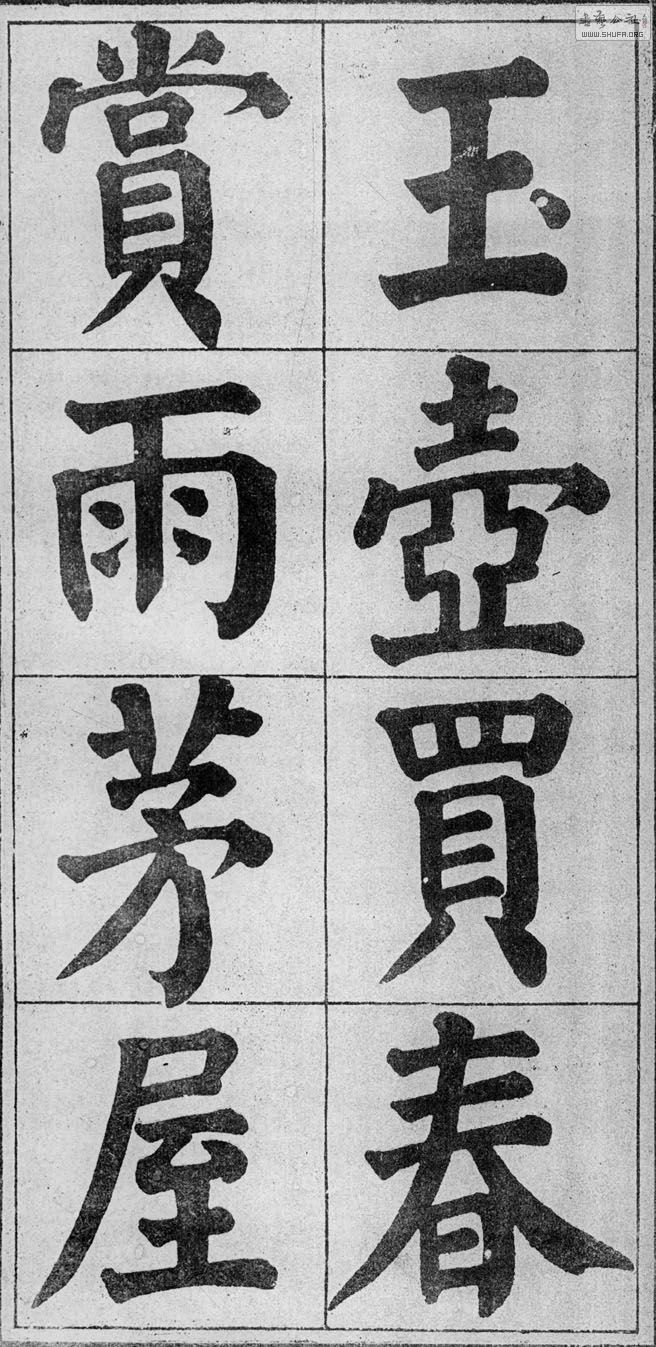 玉壺買春
賞雨茅屋
WWW.SHUFA.ORG